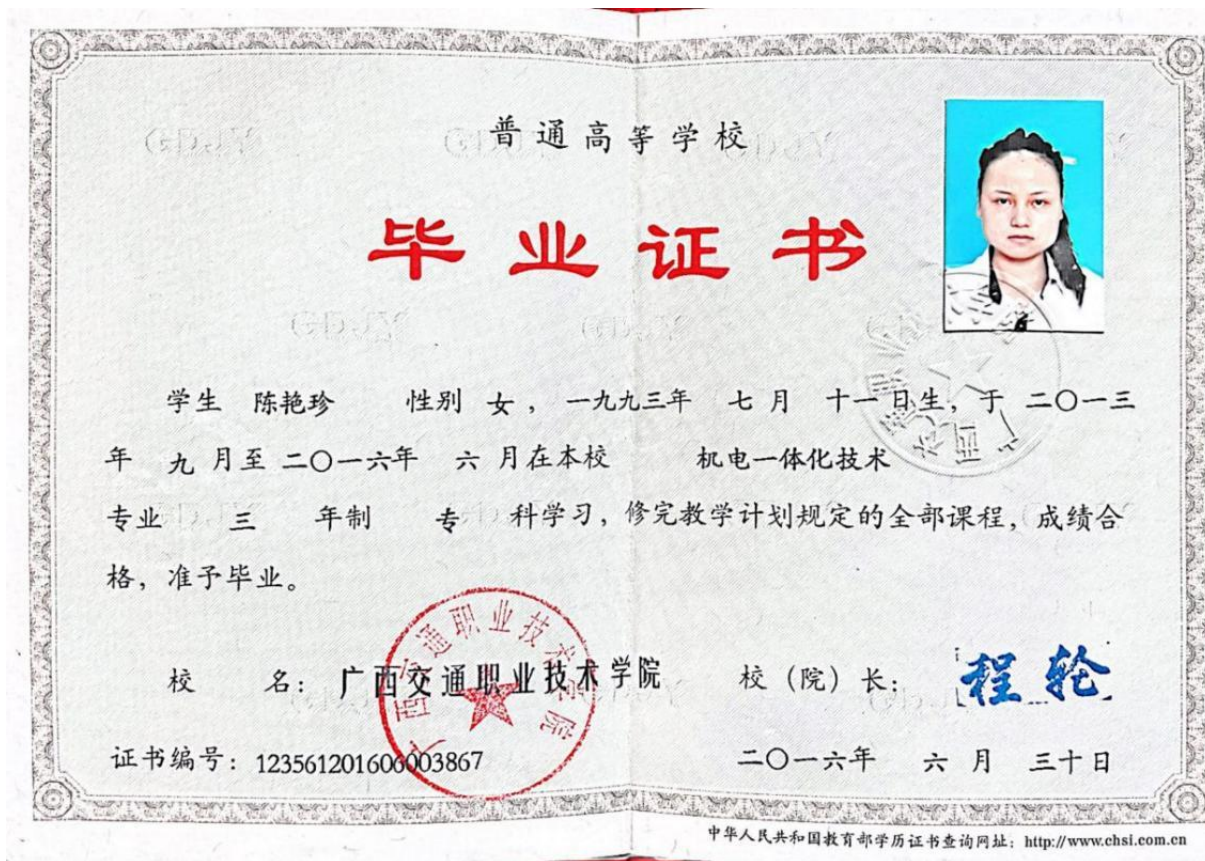 普通高等学校
毕业证书
学生 陈艳珍 性别 女，一九九三年 七月 十一日生，于 二〇一三
年 九月至二〇一六年 六月在本校 机电一体化技术
专业 三 年制 专 科学习，修完教学计划规定的全部课程，成绩合
格，准予毕业。
广西交通职业技术学院
校 名：广西交通职业技术学院 校（院）长：程轮
证书编号：123561201606003867 二〇一六年 六月 三十日
中华人民共和国教育部学历证书查询网址：http://www.chsi.com.cn